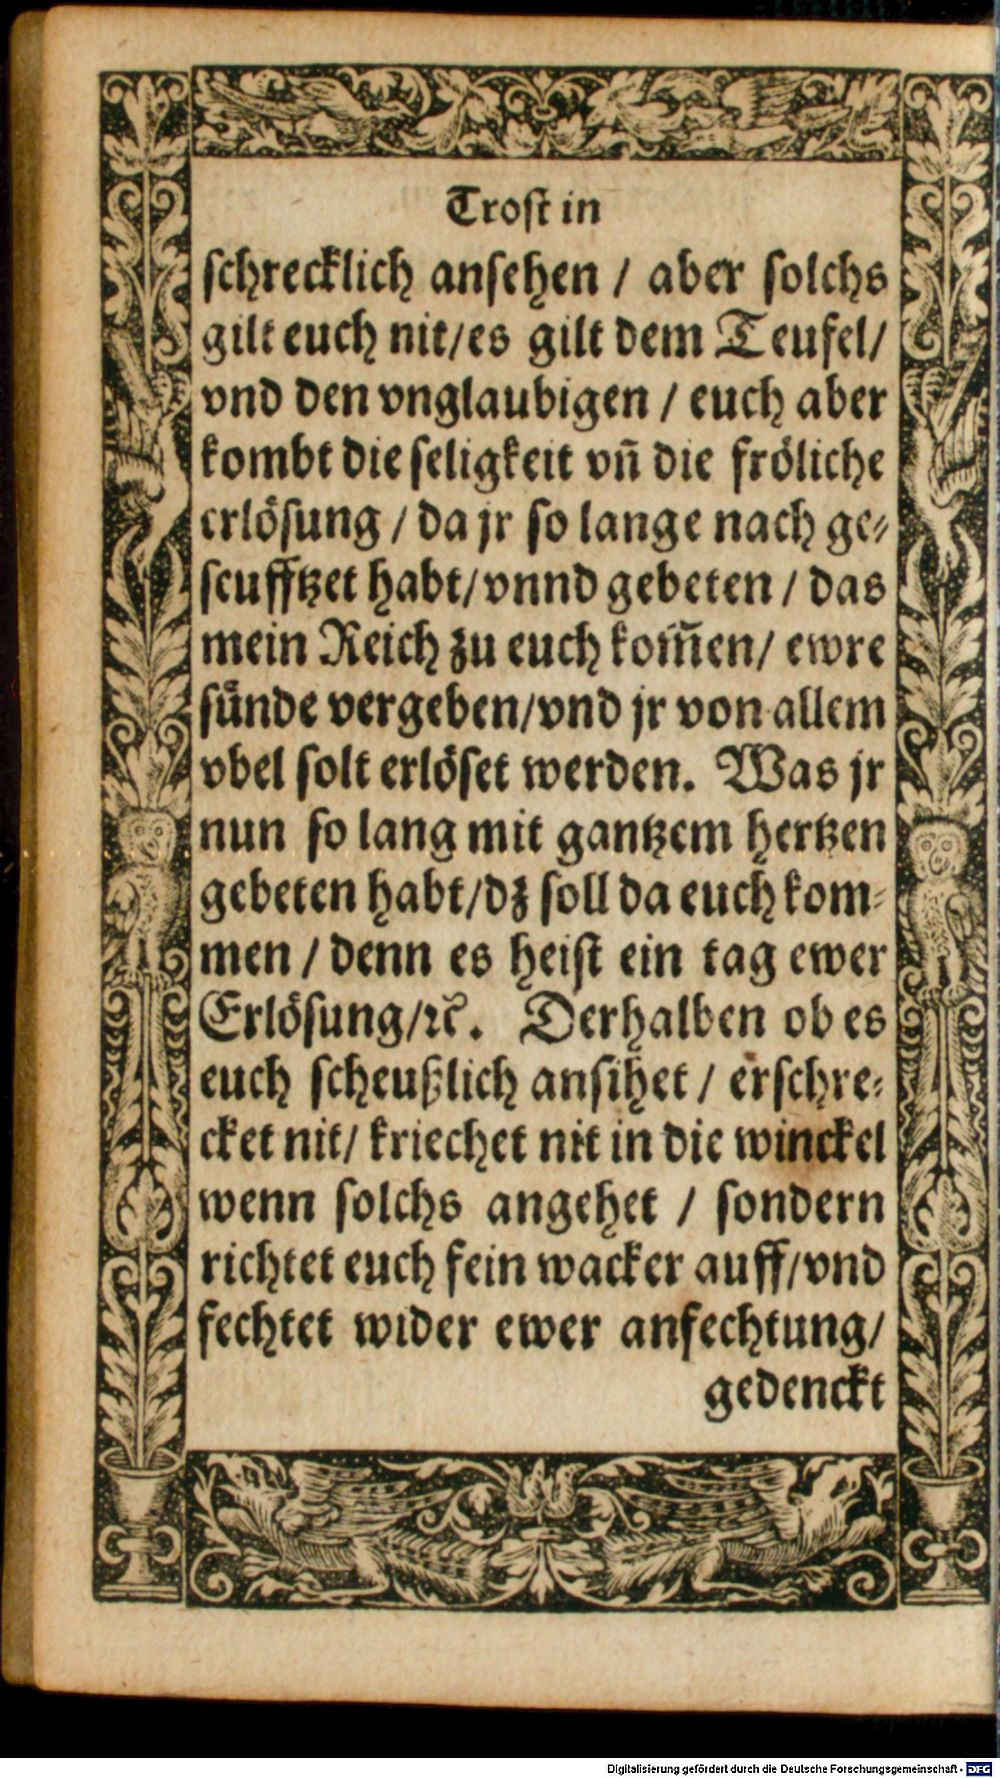 Trost in
schrecklich ansehen / aber solchs
gilt euch nit/es gilt dem Teufel/
vnd den vnglaubigen / euch aber
kombt die seligkeit vñ die fröliche
erlösung / da jr so lange nach ge⸗
seufftzet habt/vnnd gebeten / das
mein Reich zu euch kom̃en/ ewre
sünde vergeben/vnd jr von allem
vbel solt erlöset werden. Was jr
nun so lang mit gantzem hertzen
gebeten habt/dz soll da euch kom⸗
men / denn es heist ein tag ewer
Erlösung/ꝛc. Derhalben ob es
euch scheußlich ansihet / erschre⸗
cket nit/ kriechet nit in die winckel
wenn solchs angehet / sondern
richtet euch fein wacker auff/vnd
fechtet wider ewer anfechtung/
gedenckt
Digitalisierung gefördert durch die Deutsche Forschungsgemeinschaft - DFG